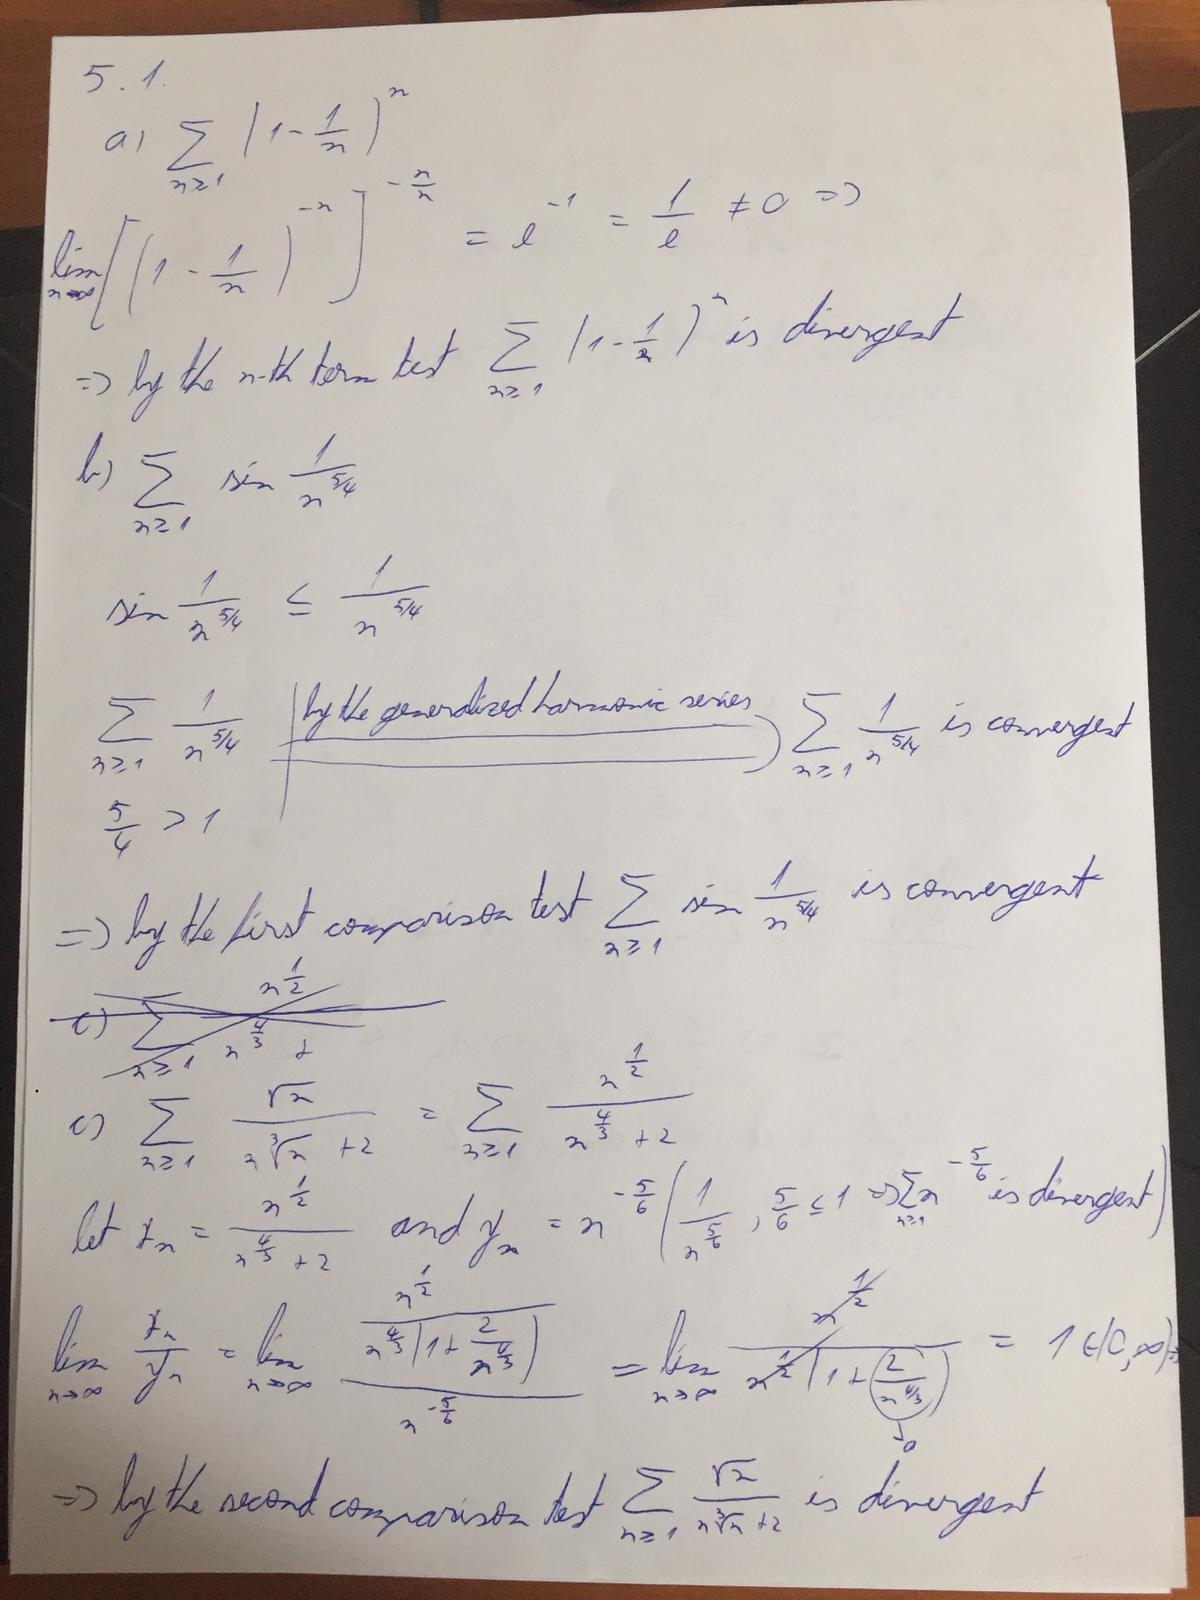 5.1.
a) ∑_{n≥1} (1 - 1/n)^n
lim_{n→∞} [(1 - 1/n)^{-n}]^{-n/n} = e^{-1} = 1/e ≠ 0 =>
=> by the n-th term test ∑_{n≥1} (1 - 1/n)^n is divergent
b) ∑_{n≥1} sin 1/n^{5/4}
sin 1/n^{5/4} ≤ 1/n^{5/4}
∑_{n≥1} 1/n^{5/4} | by the generalized harmonic series => ∑_{n≥1} 1/n^{5/4} is convergent
5/4 > 1
=> by the first comparison test ∑_{n≥1} sin 1/n^{5/4} is convergent
c) ∑_{n≥1} n^{1/2} / n^{4/3} +
c) ∑_{n≥1} √n / (n ∛n + 2) = ∑_{n≥1} n^{1/2} / (n^{4/3} + 2)
let x_n = n^{1/2} / (n^{4/3} + 2) and y_n = n^{-5/6} (1/n^{5/6}, 5/6 ≤ 1 => ∑_{n≥1} n^{-5/6} is divergent)
lim_{n→∞} x_n/y_n = lim_{n→∞} (n^{1/2} / (n^{4/3} (1 + 2/n^{4/3}))) / n^{-5/6} = lim_{n→∞} n^{1/2} / (n^{1/2} (1 + 2/n^{4/3})) = 1 ∈ (0, ∞) =>
→0
=> by the second comparison test ∑_{n≥1} √n / (n ∛n + 2) is divergent